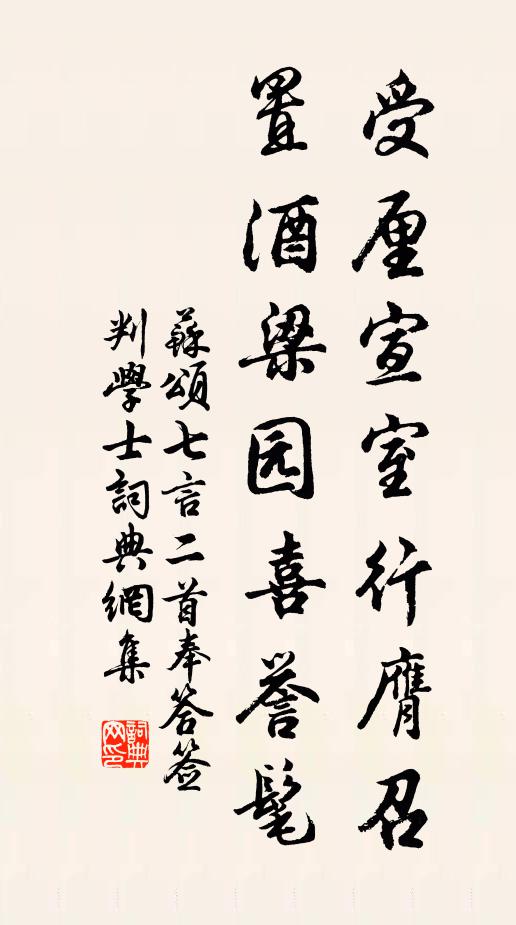 受厘宣室行膺召
置酒梁园喜誉髦
蘇頌七言二首奉答签
判學士詞典網集
詞典网印